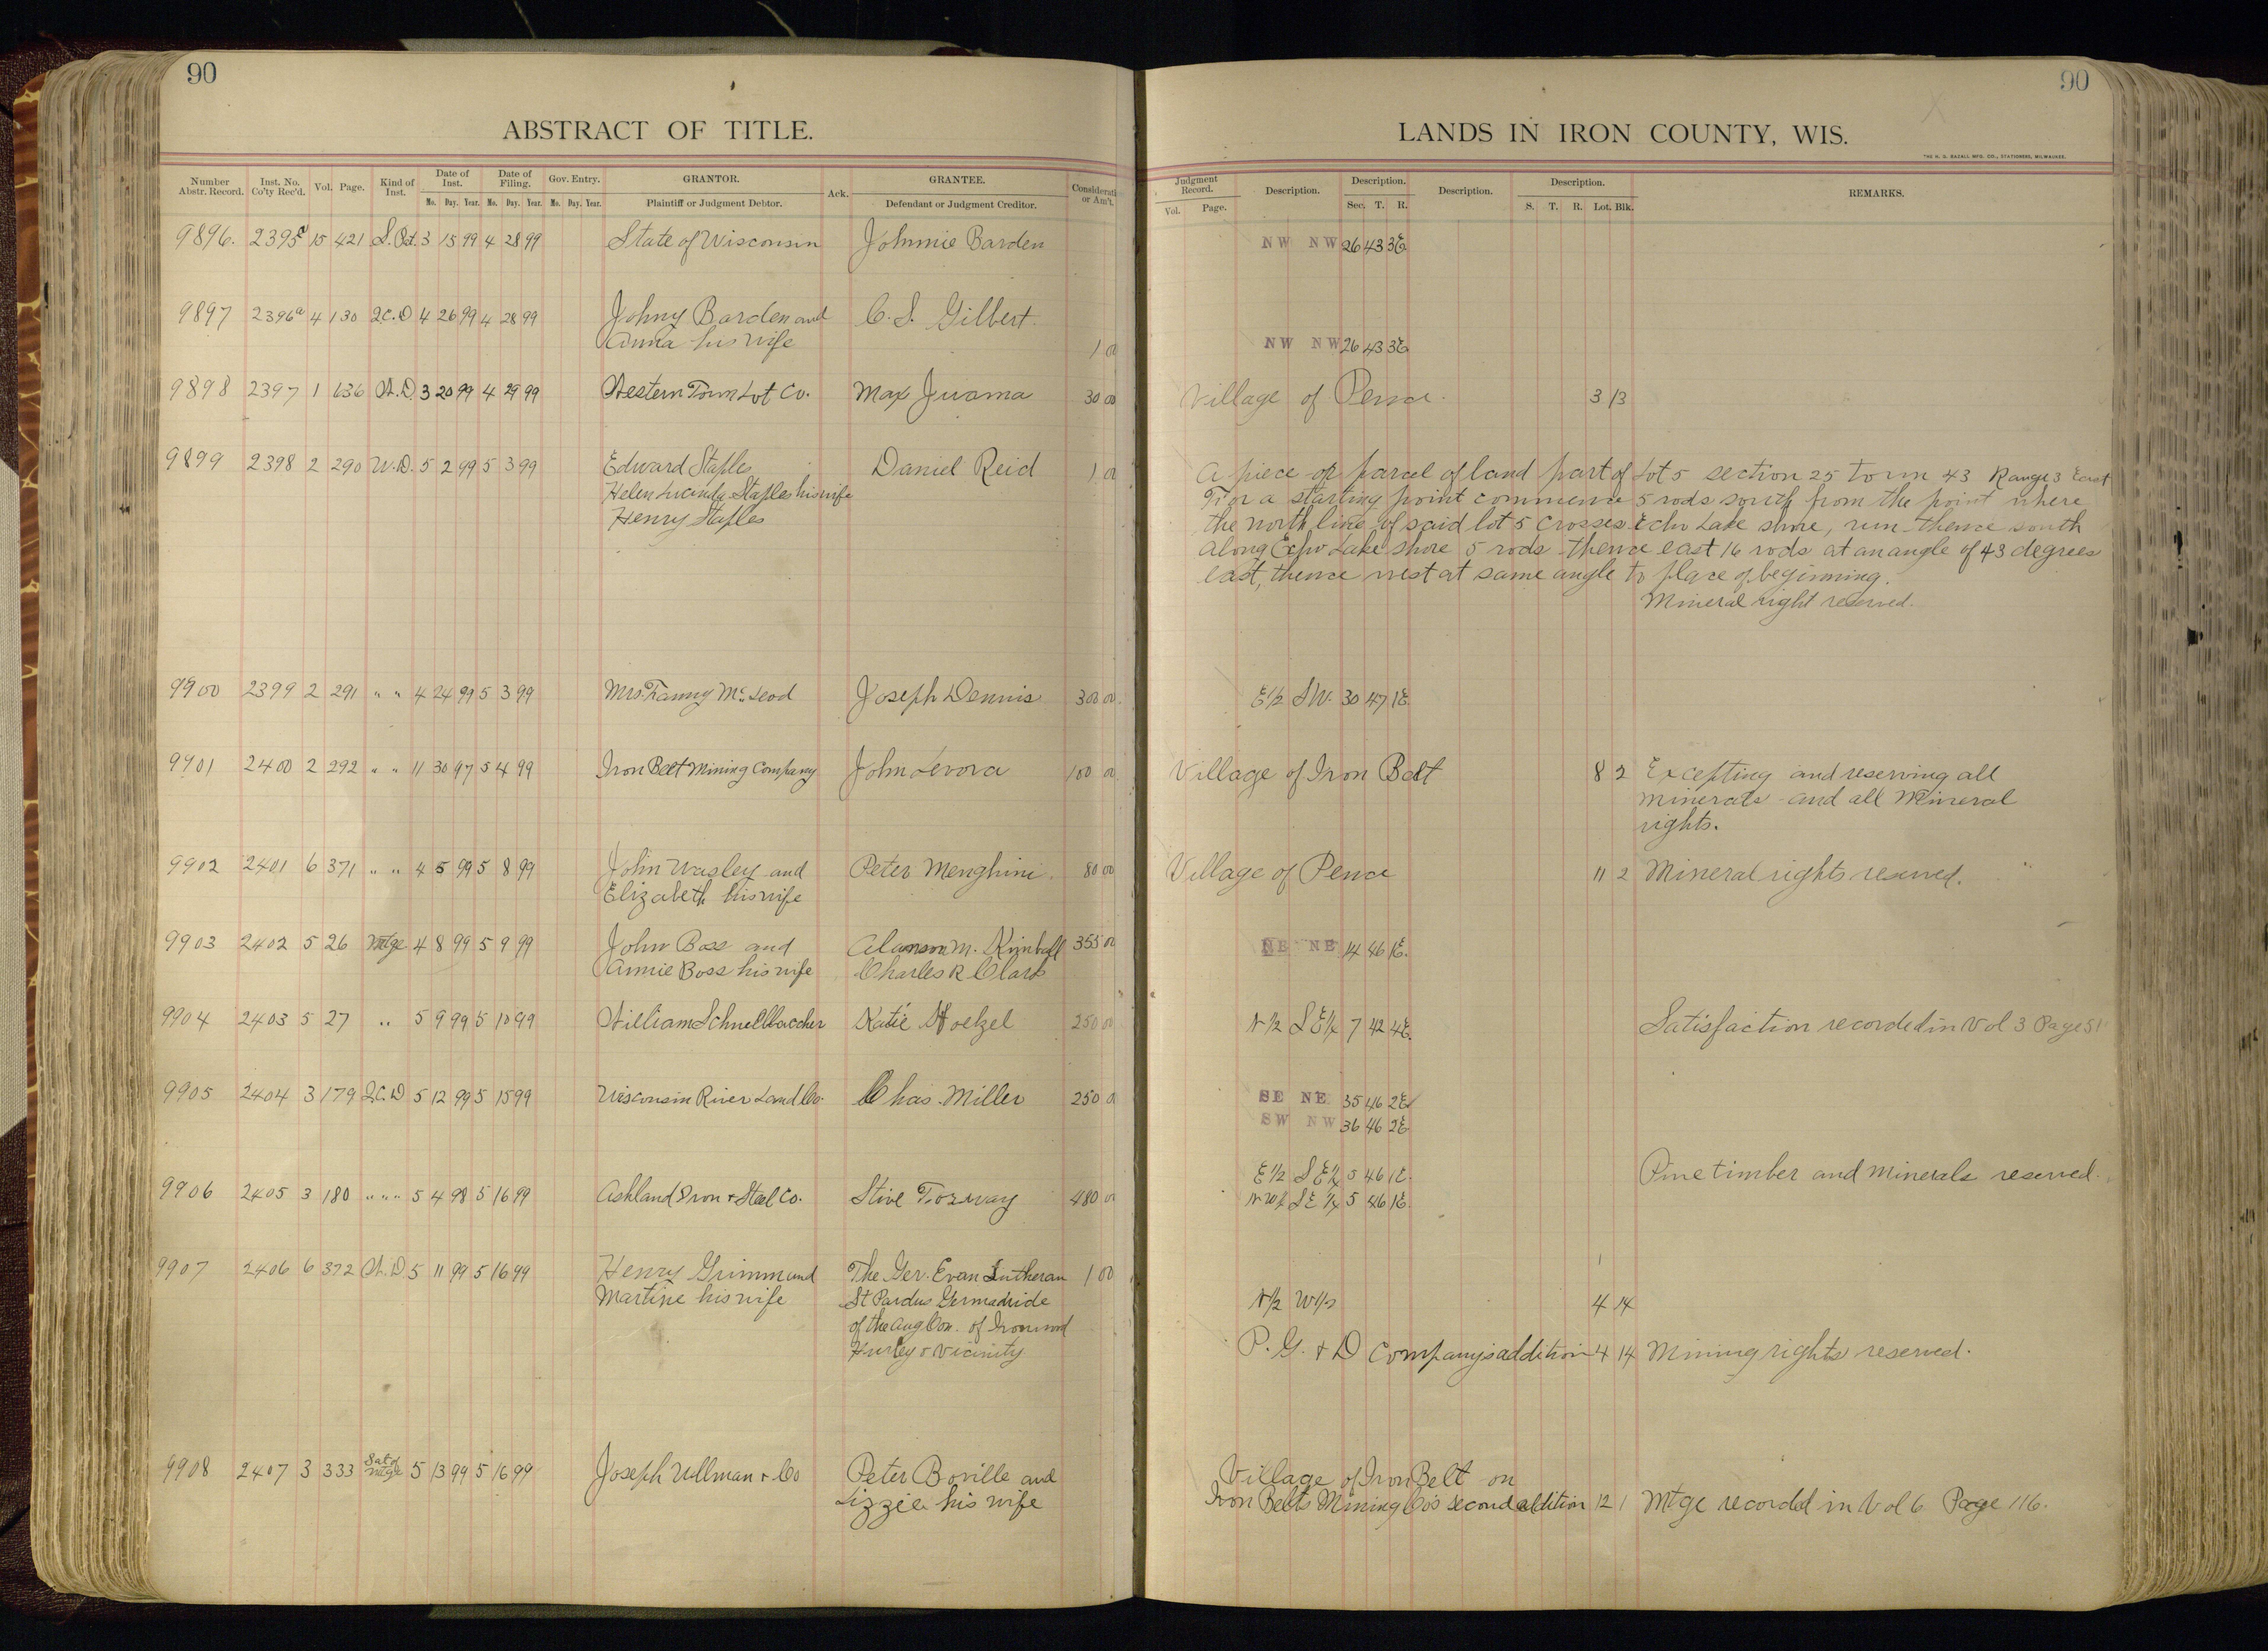 90
ABSTRACT OF TITLE.
Number Abstr. Record. Inst. No. Co'ty Rec'd. Vol. Page. Kind of Inst. Date of Inst. Mo. Day. Year. Date of Filing. Mo. Day. Year. Gov. Entry. Mo. Day. Year. GRANTOR. Plaintiff or Judgment Debtor. Ack. GRANTEE. Defendant or Judgment Creditor. Considerati or Am't.
9896. 2395a 15 421 S. Pat. 3 15 99 4 28 99 State of Wisconsin Johnnie Barden
9897 2396a 4 130 Q.C.D 4 26 99 4 28 99 Johny Barden and C. S. Gilbert.
Anna his wife 1 00
9898 2397 1 636 W.D. 3 20 99 4 29 99 Western Town Lot Co. Max Juama 30 00
9899 2398 2 290 W.D. 5 2 99 5 3 99 Edward Staples Daniel Reid 1 00
Helen Lucinda Staples his wife
Henry Staples
9900 2399 2 291 " " 4 24 99 5 3 99 Mrs. Fanny McLeod Joseph Dennis 300 00
9901 2400 2 292 " " 11 30 97 5 4 99 Iron Belt Mining Company John Levora 100 00
9902 2401 6 371 " " 4 5 99 5 8 99 John Wasley and Peter Menghini. 80 00
Elizabeth his wife
9903 2402 5 26 Mtge 4 8 99 5 9 99 John Boss and Alanson M. Kimball 355 00
Annie Boss his wife Charles R Clark
9904 2403 5 27 " 5 9 99 5 10 99 William Schnellbaccher Katie Hoelzel 250 00
9905 2404 3 179 Q.C.D 5 12 99 5 15 99 Wisconsin River Land Co. Chas. Miller 250 0
9906 2405 3 180 " " " 5 4 98 5 16 99 Ashland Iron & Steel Co. Stive 480 00
9907 2406 6 372 W.D 5 11 99 5 16 99 Henry Grimm und The Ger. Evan Lutheran 1 00
Martine his wife St Pardus
of the Aug Con. of Ironwood
Hurley & Vicinity
9908 2407 3 333 Sat of Mtge 5 13 99 5 16 99 Joseph Ullman & Co Peter Boville and
Lizzie his wife
90
LANDS IN IRON COUNTY, WIS.
THE H. G. RAZALL MFG. CO., STATIONERS, MILWAUKEE.
Judgment Record. Vol. Page. Description. Description. Sec. T. R. Description. Description. S. T. R. Lot. Blk. REMARKS.
NW NW 26 43 3E
NW NW 26 43 3E
Village of Pence. 3 13
A piece or parcel of land part of Lot 5 section 25 town 43 Range 3 East
For a starting point commence 5 rods south from the point where
the north line of said lot 5 crosses Echo Lake shore, run thence south
along Echo Lake shore 5 rods thence east 16 rods at an angle of 43 degrees
east, thence west at same angle to place of beginning.
Mineral right reserved.
E1/2 SW. 30 47 1E.
Village of Iron Belt 8 2 Excepting and reserving all
minerals and all Mineral
rights.
Village of Pence 11 2 Mineral rights reserved.
NE NE 14 46 1E.
N 1/2 SE 1/4 7 42 4E. Satisfaction recorded in Vol 3 Page 51
SE NE 35 46 2E
SW NW 36 46 2E
E 1/2 SE 1/4 5 46 1E. Pine timber and minerals reserved.
NW 1/4 SE 1/4 5 46 1E.
N 1/2 W 1/2 4 14
P. G. & D Company's addition 4 14 Mining rights reserved.
Village of Iron Belt on
Iron Belts Mining Co's second addition 12 1 Mtge recorded in Vol 6 Page 116.